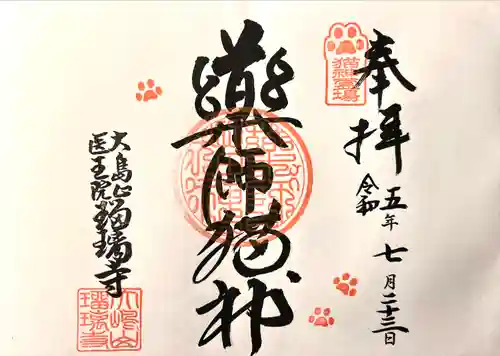 奉拝
令和五年七月二十三日
薬師猫神
大島山
医王院瑠璃寺
大嶋山
瑠璃寺